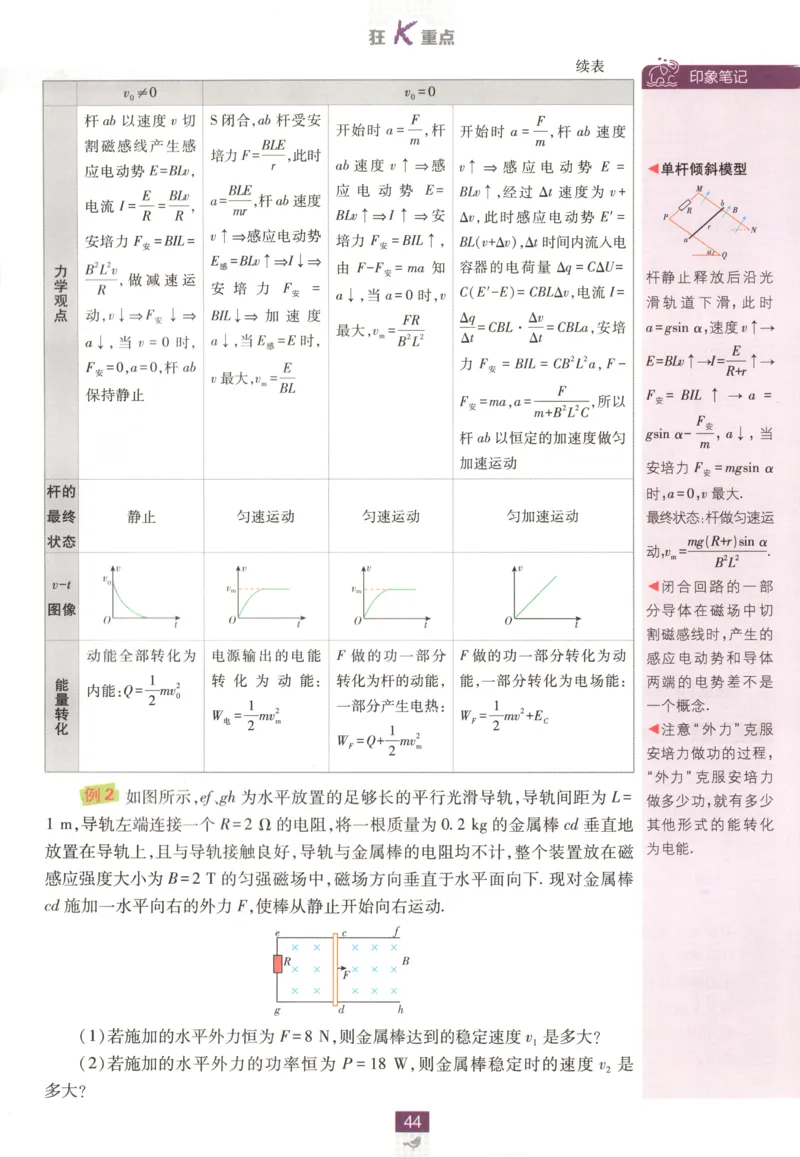 狂K重点
续表
v₀≠0
v₀=0
力学观点
杆 ab 以速度 v 切
割磁感线产生感
应电动势 E=BLv,
电流 I=E/R=BLv/R,
安培力 F安=BIL=
B²L²v/R,做减速运
动,v↓⇒F安↓⇒
a↓,当 v=0 时,
F安=0,a=0,杆 ab
保持静止
S 闭合,ab 杆受安
培力 F=BLE/r,此时
a=BLE/mr,杆 ab 速度
v↑⇒感应电动势
E感=BLv↑⇒I↓⇒
安培力 F安=
BIL↓⇒加速度
a↓,当 E感=E 时,
v 最大,vm=E/BL
开始时 a=F/m,杆
ab 速度 v↑⇒感
应电动势 E=
BLv↑⇒I↑⇒安
培力 F安=BIL↑,
由 F-F安=ma 知
a↓,当 a=0 时,v
最大,vm=FR/B²L²
开始时 a=F/m,杆 ab 速度
v↑⇒感应电动势 E=
BLv↑,经过 Δt 速度为 v+
Δv,此时感应电动势 E′=
BL(v+Δv),Δt 时间内流入电
容器的电荷量 Δq=CΔU=
C(E′-E)=CBLΔv,电流 I=
Δq/Δt=CBL·Δv/Δt=CBLa,安培
力 F安=BIL=CB²L²a,F-
F安=ma,a=F/(m+B²L²C),所以
杆 ab 以恒定的加速度做匀
加速运动
杆的
最终
状态
静止
匀速运动
匀速运动
匀加速运动
v-t
图像
v
v₀
O
t
v
vm
O
t
v
vm
O
t
v
O
t
能量转化
动能全部转化为
内能:Q=1/2mv₀²
电源输出的电能
转化为动能:
W电=1/2mvm²
F 做的功一部分
转化为杆的动能,
一部分产生电热:
WF=Q+1/2mvm²
F 做的功一部分转化为动
能,一部分转化为电场能:
WF=1/2mv²+EC
例2 如图所示,ef、gh 为水平放置的足够长的平行光滑导轨,导轨间距为 L=
1 m,导轨左端连接一个 R=2 Ω 的电阻,将一根质量为 0.2 kg 的金属棒 cd 垂直地
放置在导轨上,且与导轨接触良好,导轨与金属棒的电阻均不计,整个装置放在磁
感应强度大小为 B=2 T 的匀强磁场中,磁场方向垂直于水平面向下. 现对金属棒
cd 施加一水平向右的外力 F,使棒从静止开始向右运动.
e
c
f
R
F
B
g
d
h
(1)若施加的水平外力恒为 F=8 N,则金属棒达到的稳定速度 v₁ 是多大?
(2)若施加的水平外力的功率恒为 P=18 W,则金属棒稳定时的速度 v₂ 是
多大?
44
印象笔记
◀单杆倾斜模型
M
R
b
B
P
r
N
a
α
Q
杆静止释放后沿光
滑轨道下滑,此时
a=gsin α,速度 v↑→
E=BLv↑→I=E/(R+r)↑→
F安=BIL↑→a=
gsin α-F安/m,a↓,当
安培力 F安=mgsin α
时,a=0,v 最大.
最终状态:杆做匀速运
动,vm=mg(R+r)sin α/B²L².
◀闭合回路的一部
分导体在磁场中切
割磁感线时,产生的
感应电动势和导体
两端的电势差不是
一个概念.
◀注意“外力”克服
安培力做功的过程,
“外力”克服安培力
做多少功,就有多少
其他形式的能转化
为电能.